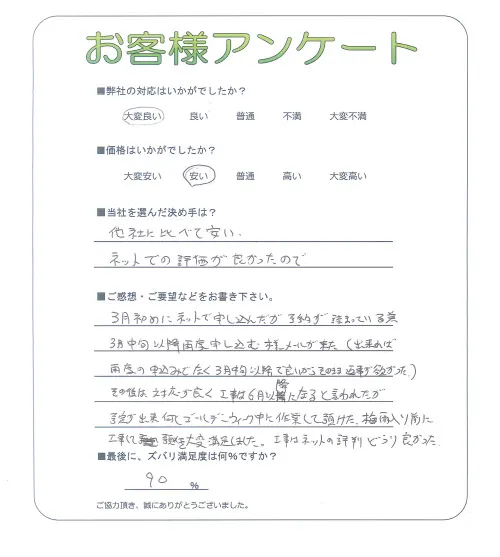 お客様アンケート
■弊社の対応はいかがでしたか？
大変良い 良い 普通 不満 大変不満
■価格はいかがでしたか？
大変安い 安い 普通 高い 大変高い
■当社を選んだ決め手は？
他社に比べて安い.
ネットでの評価が良かったので
■ご感想・ご要望などをお書き下さい。
3月初めにネットで申し込んだが予約が詰まっている為
3月中旬以降再度申し込む様メールが来た（出来れば
再度の申込みでなく3月中旬以降で良いからそのまま返事が欲かった）
その後は対応が良く工事は6月以降になると言われたが
予定が出来ゴールデンウィーク中に作業して頂けた.梅雨入り前に
工事して頂き大変満足しました。工事はネットの評判どうり良かった.
■最後に、ズバリ満足度は何%ですか？
90 %
ご協力頂き、誠にありがとうございました。